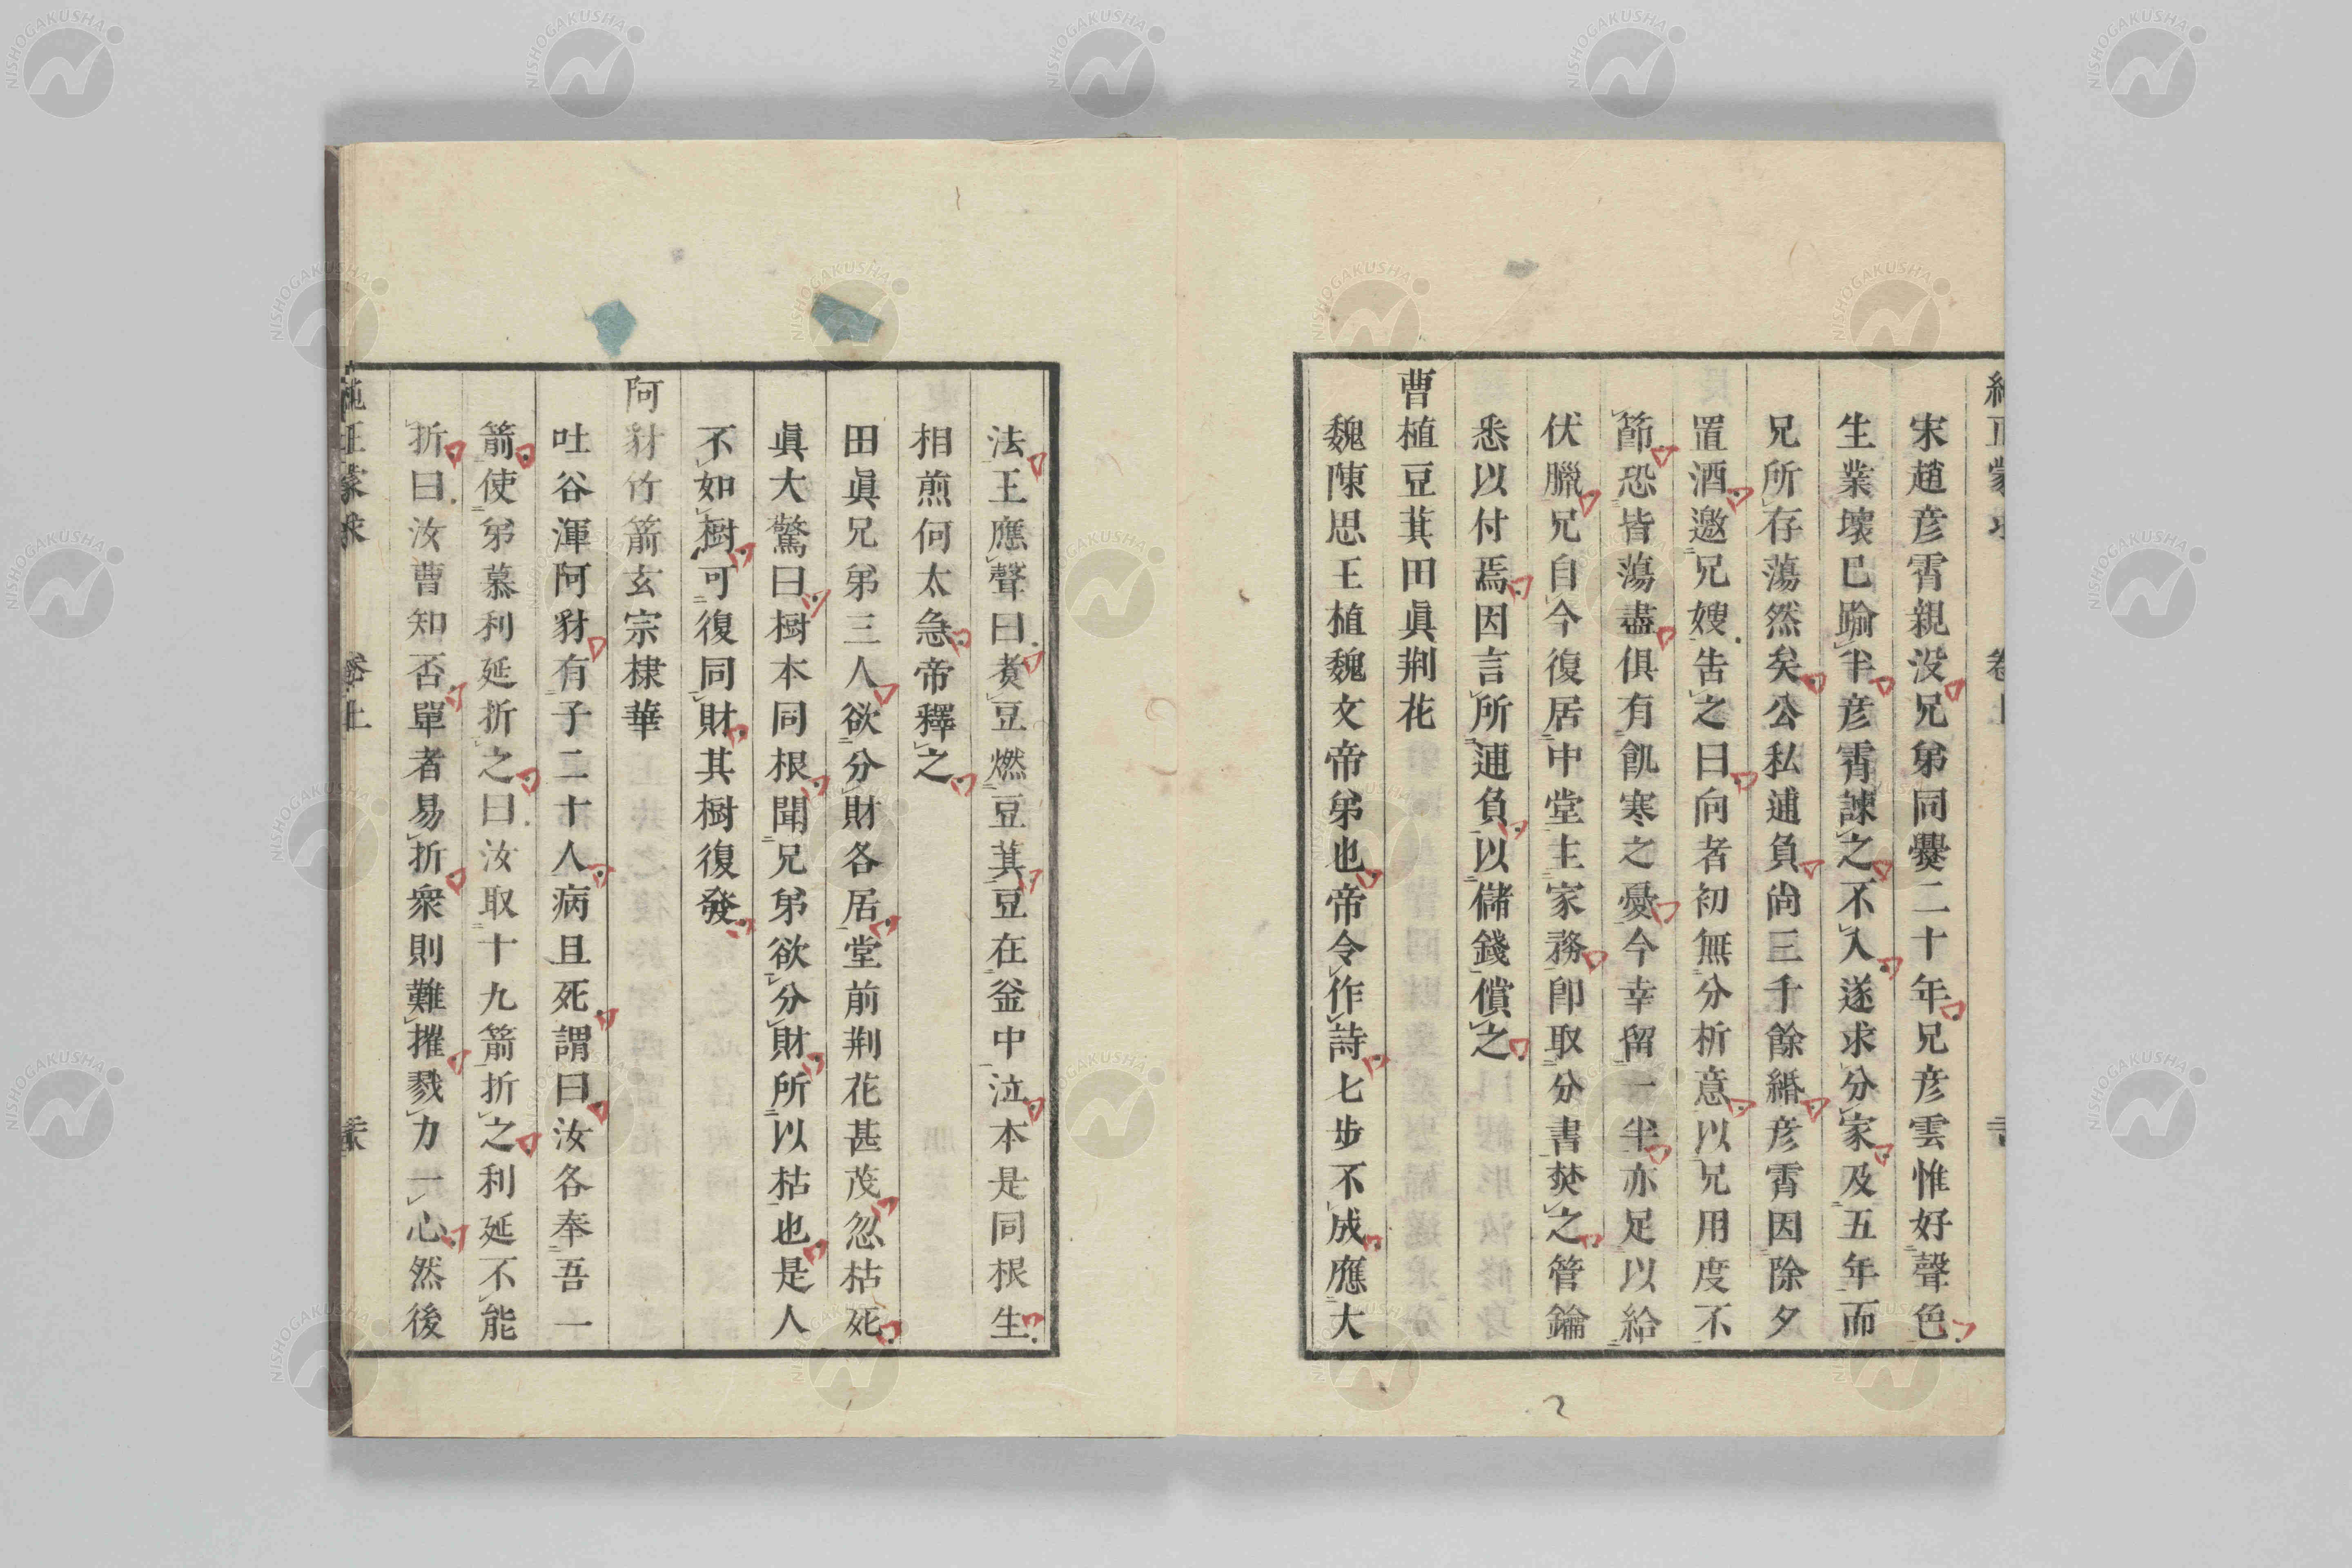 宋趙彦霄親没兄弟同㸑二十年兄彦雲惟好聲色
生業壞已踰半彦霄諫之不入遂求分家及五年而
兄所存蕩然矣公私逋負尙三千餘緡彦霄因除夕
置酒邀兄嫂告之曰向者初無分析意以兄用度不
節恐皆蕩盡俱有飢寒之憂今幸留一半亦足以給
伏臘兄自今復居中堂主家務卽取分書焚之管鑰
悉以付焉因言所逋負以儲錢償之
曹植豆萁田眞荆花
魏陳思王植魏文帝弟也帝令作詩七步不成應大
法王應聲曰煮豆燃豆萁豆在釜中泣本是同根生
相煎何太急帝釋之
田眞兄弟三人欲分財各居堂前荆花甚茂忽枯死
眞大驚曰樹本同根聞兄弟欲分財所以枯也是人
不如樹可復同財其樹復發
阿豺竹箭玄宗棣華
吐谷渾阿豺有子二十人病且死謂曰汝各奉吾一
箭使弟慕利延折之曰汝取十九箭折之利延不能
折曰汝曹知否單者易折衆則難摧戮力一心然後
純正蒙求 卷上
NISHOGAKUSHA